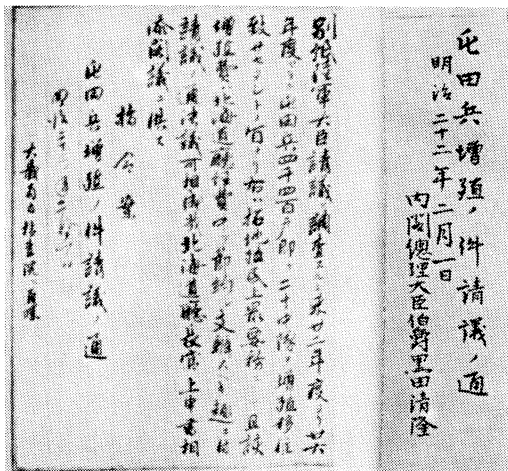 屯田兵増殖ノ件請議ノ通
明治二十二年二月一日
内閣總理大臣伯爵黒田清隆
別紙陸軍大臣請議調査スルニ来廿二年度ヨリ廿六
年度マテ屯田兵四千四百戸即チ二十中隊ノ増殖移住
致サセタシト有リ右ハ拓地殖民上最要務ニ且該
増殖費ハ北海道廳經費中ヨリ節約シ支辨スル趣ニ付
請議ノ通決議可相成哉北海道廳長官上申書相
添閣議ニ供ス
指令案
屯田兵増殖ノ件請議ノ通
明治二十二年二月一日